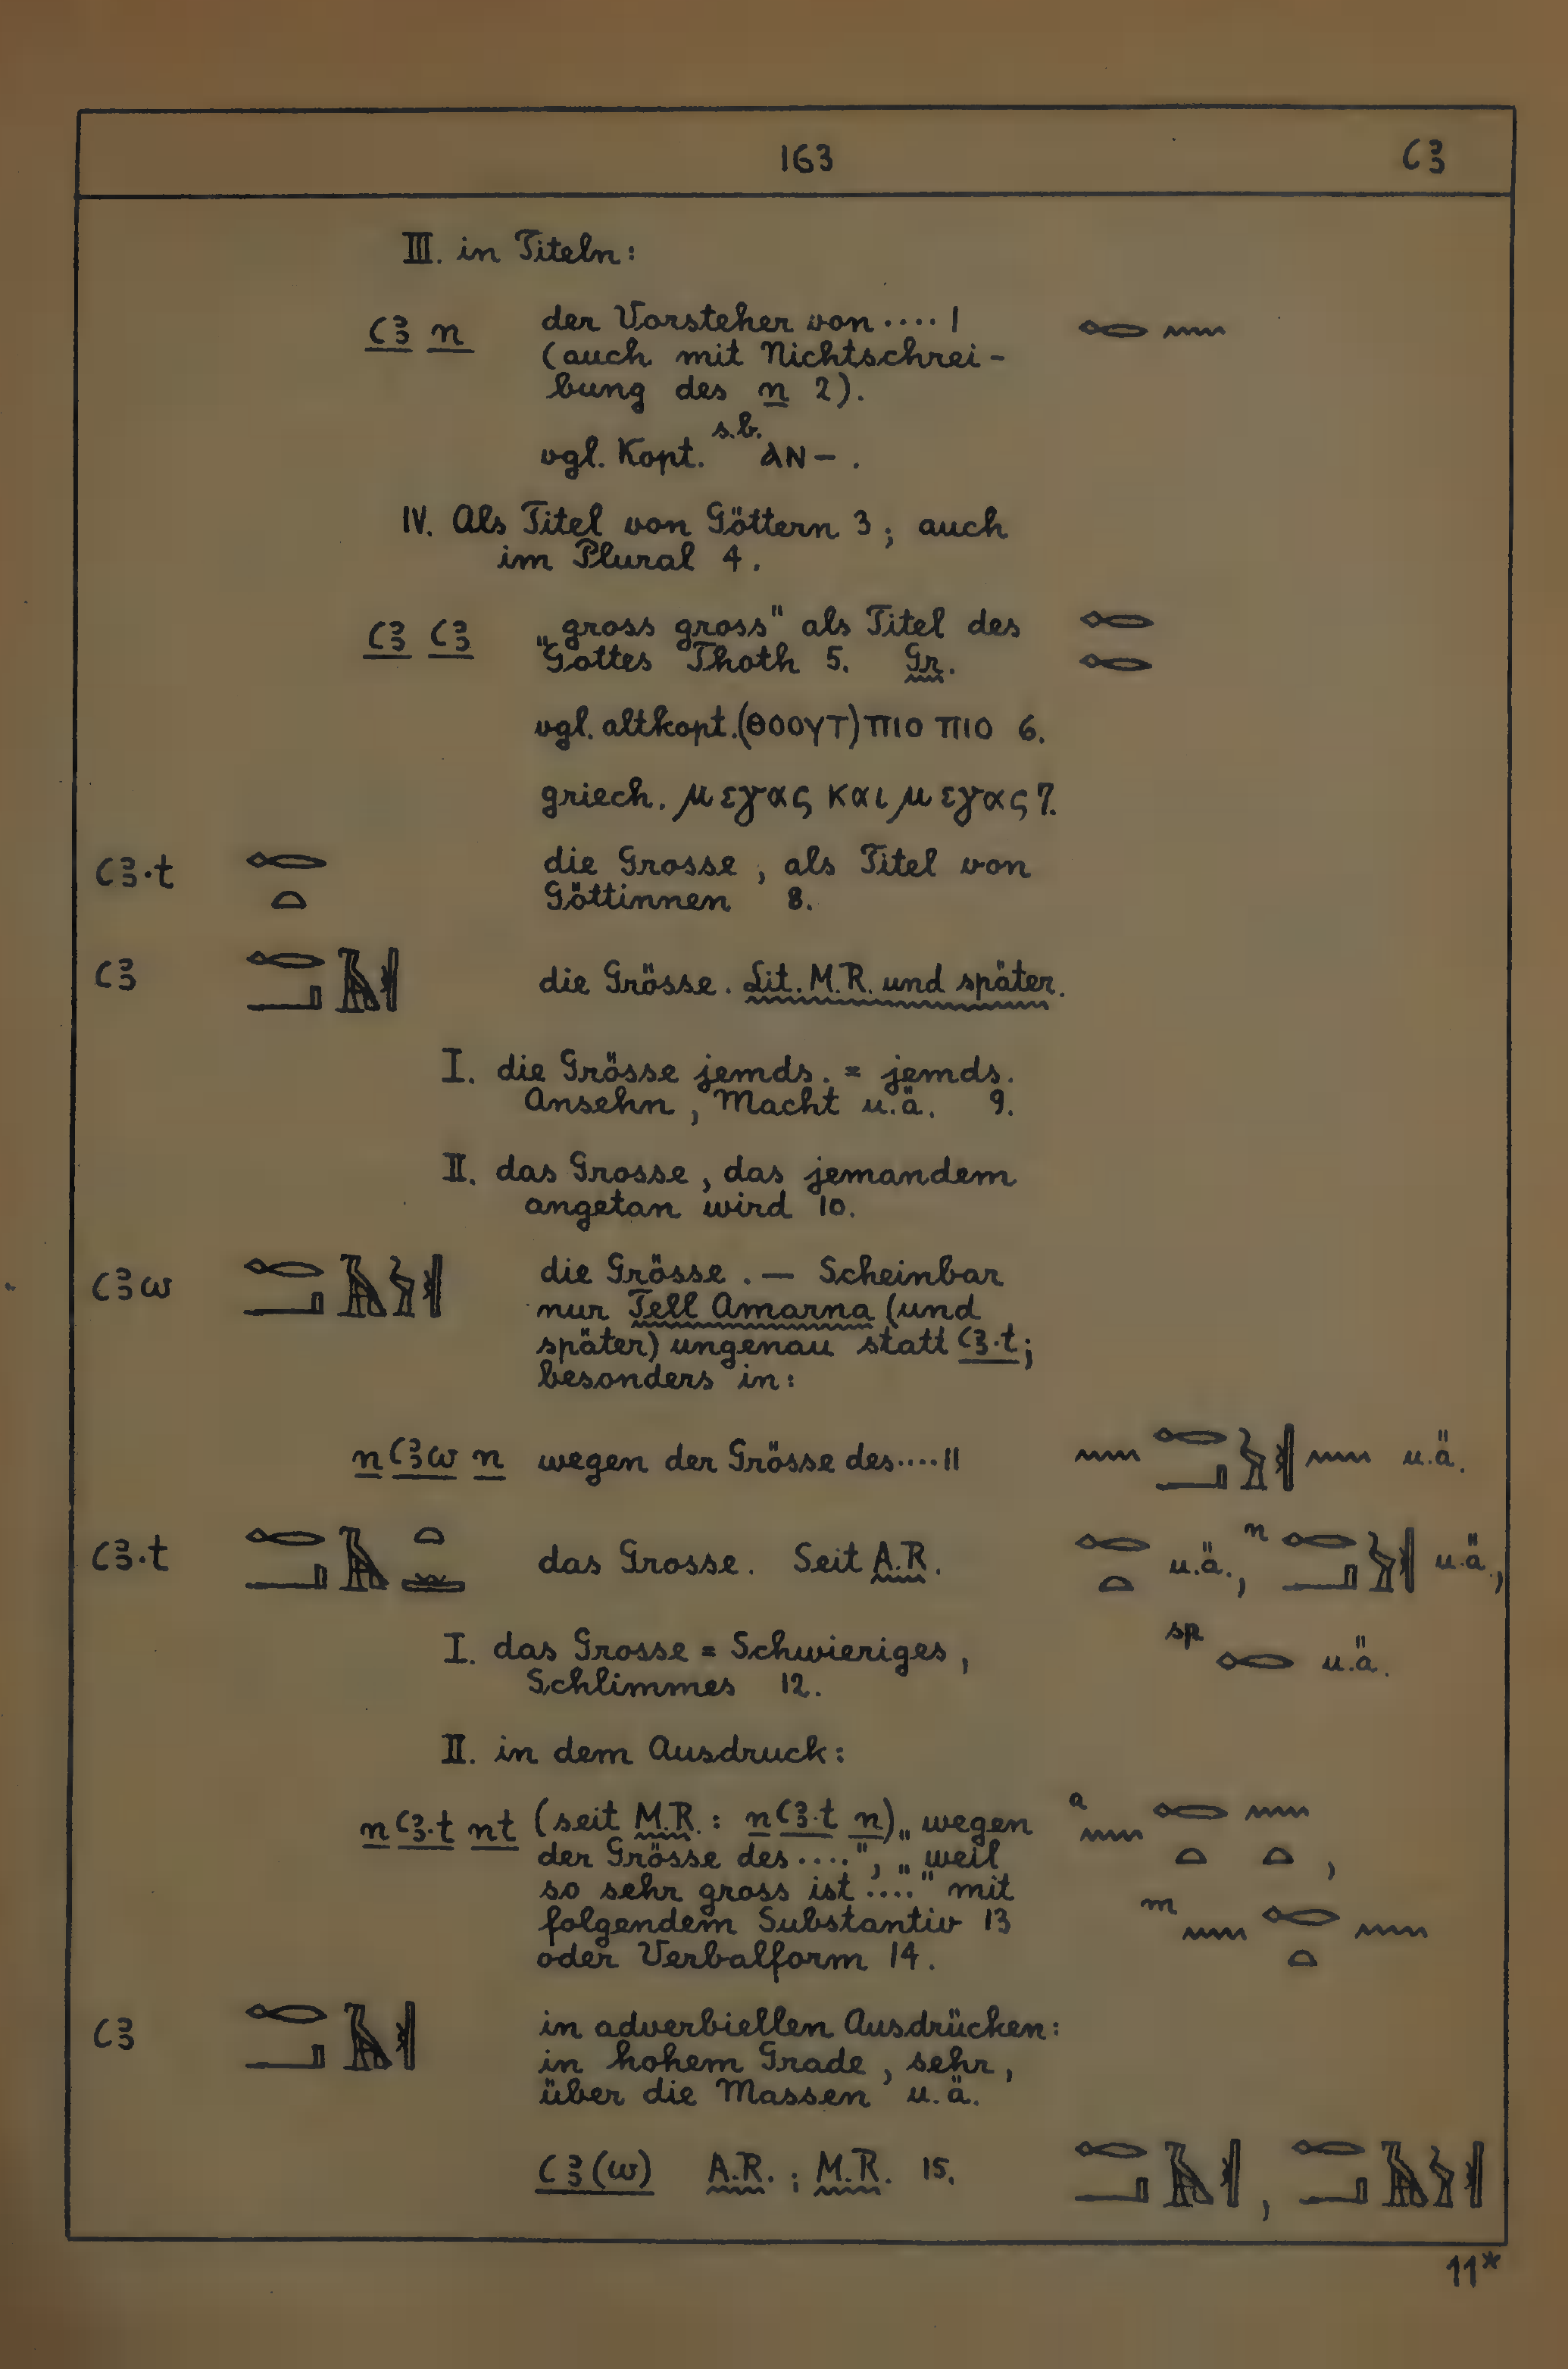 163 ꜥꜣ
III. in Titeln:
ꜥꜣ n der Vorsteher von .... 1 𓉻 𓈖
(auch mit Nichtschrei-
bung des n 2).
vgl. Kopt. s.b. ⲁⲛ- .
IV. Als Titel von Göttern 3; auch
im Plural 4.
ꜥꜣ ꜥꜣ „gross gross" als Titel des 𓉻
Gottes Thoth 5. Gr. 𓉻
vgl. altkopt. (ⲑⲟⲟⲩⲧ) ⲡⲓⲟ ⲡⲓⲟ 6.
griech. μεγας και μεγας 7.
ꜥꜣ.t 𓉻𓏏 die Grosse, als Titel von
Göttinnen 8.
ꜥꜣ 𓉻𓂝𓄿𓏛 die Grösse. Lit. M.R. und später.
I. die Grösse jemds. = jemds.
Ansehn, Macht u.ä. 9.
II. das Grosse, das jemandem
angetan wird 10.
ꜥꜣw 𓉻𓂝𓄿𓅱𓏛 die Grösse. — Scheinbar
nur Tell Amarna (und
später) ungenau statt ꜥꜣ.t;
besonders in:
n ꜥꜣw n wegen der Grösse des .... 11 𓈖𓉻𓂝𓅱𓏛𓈖 u.ä.
ꜥꜣ.t 𓉻𓂝𓄿𓏏𓏛 das Grosse. Seit A.R. 𓉻𓏏 u.ä., n 𓉻𓂝𓅱𓏛 u.ä.,
I. das Grosse = Schwieriges, sp 𓉻 u.ä.
Schlimmes 12.
II. in dem Ausdruck:
n ꜥꜣ.t nt (seit M.R.: n ꜥꜣ.t n) „wegen a 𓈖𓉻𓏏𓈖𓏏,
der Grösse des ....", „weil
so sehr gross ist ...." mit m 𓈖𓉻𓏏𓈖
folgendem Substantiv 13
oder Verbalform 14.
ꜥꜣ 𓉻𓂝𓄿𓏛 in adverbiellen Ausdrücken:
in hohem Grade, sehr,
über die Massen u.ä.
ꜥꜣ(w) A.R.; M.R. 15. 𓉻𓂝𓄿𓏛, 𓉻𓂝𓄿𓅱𓏛
11*